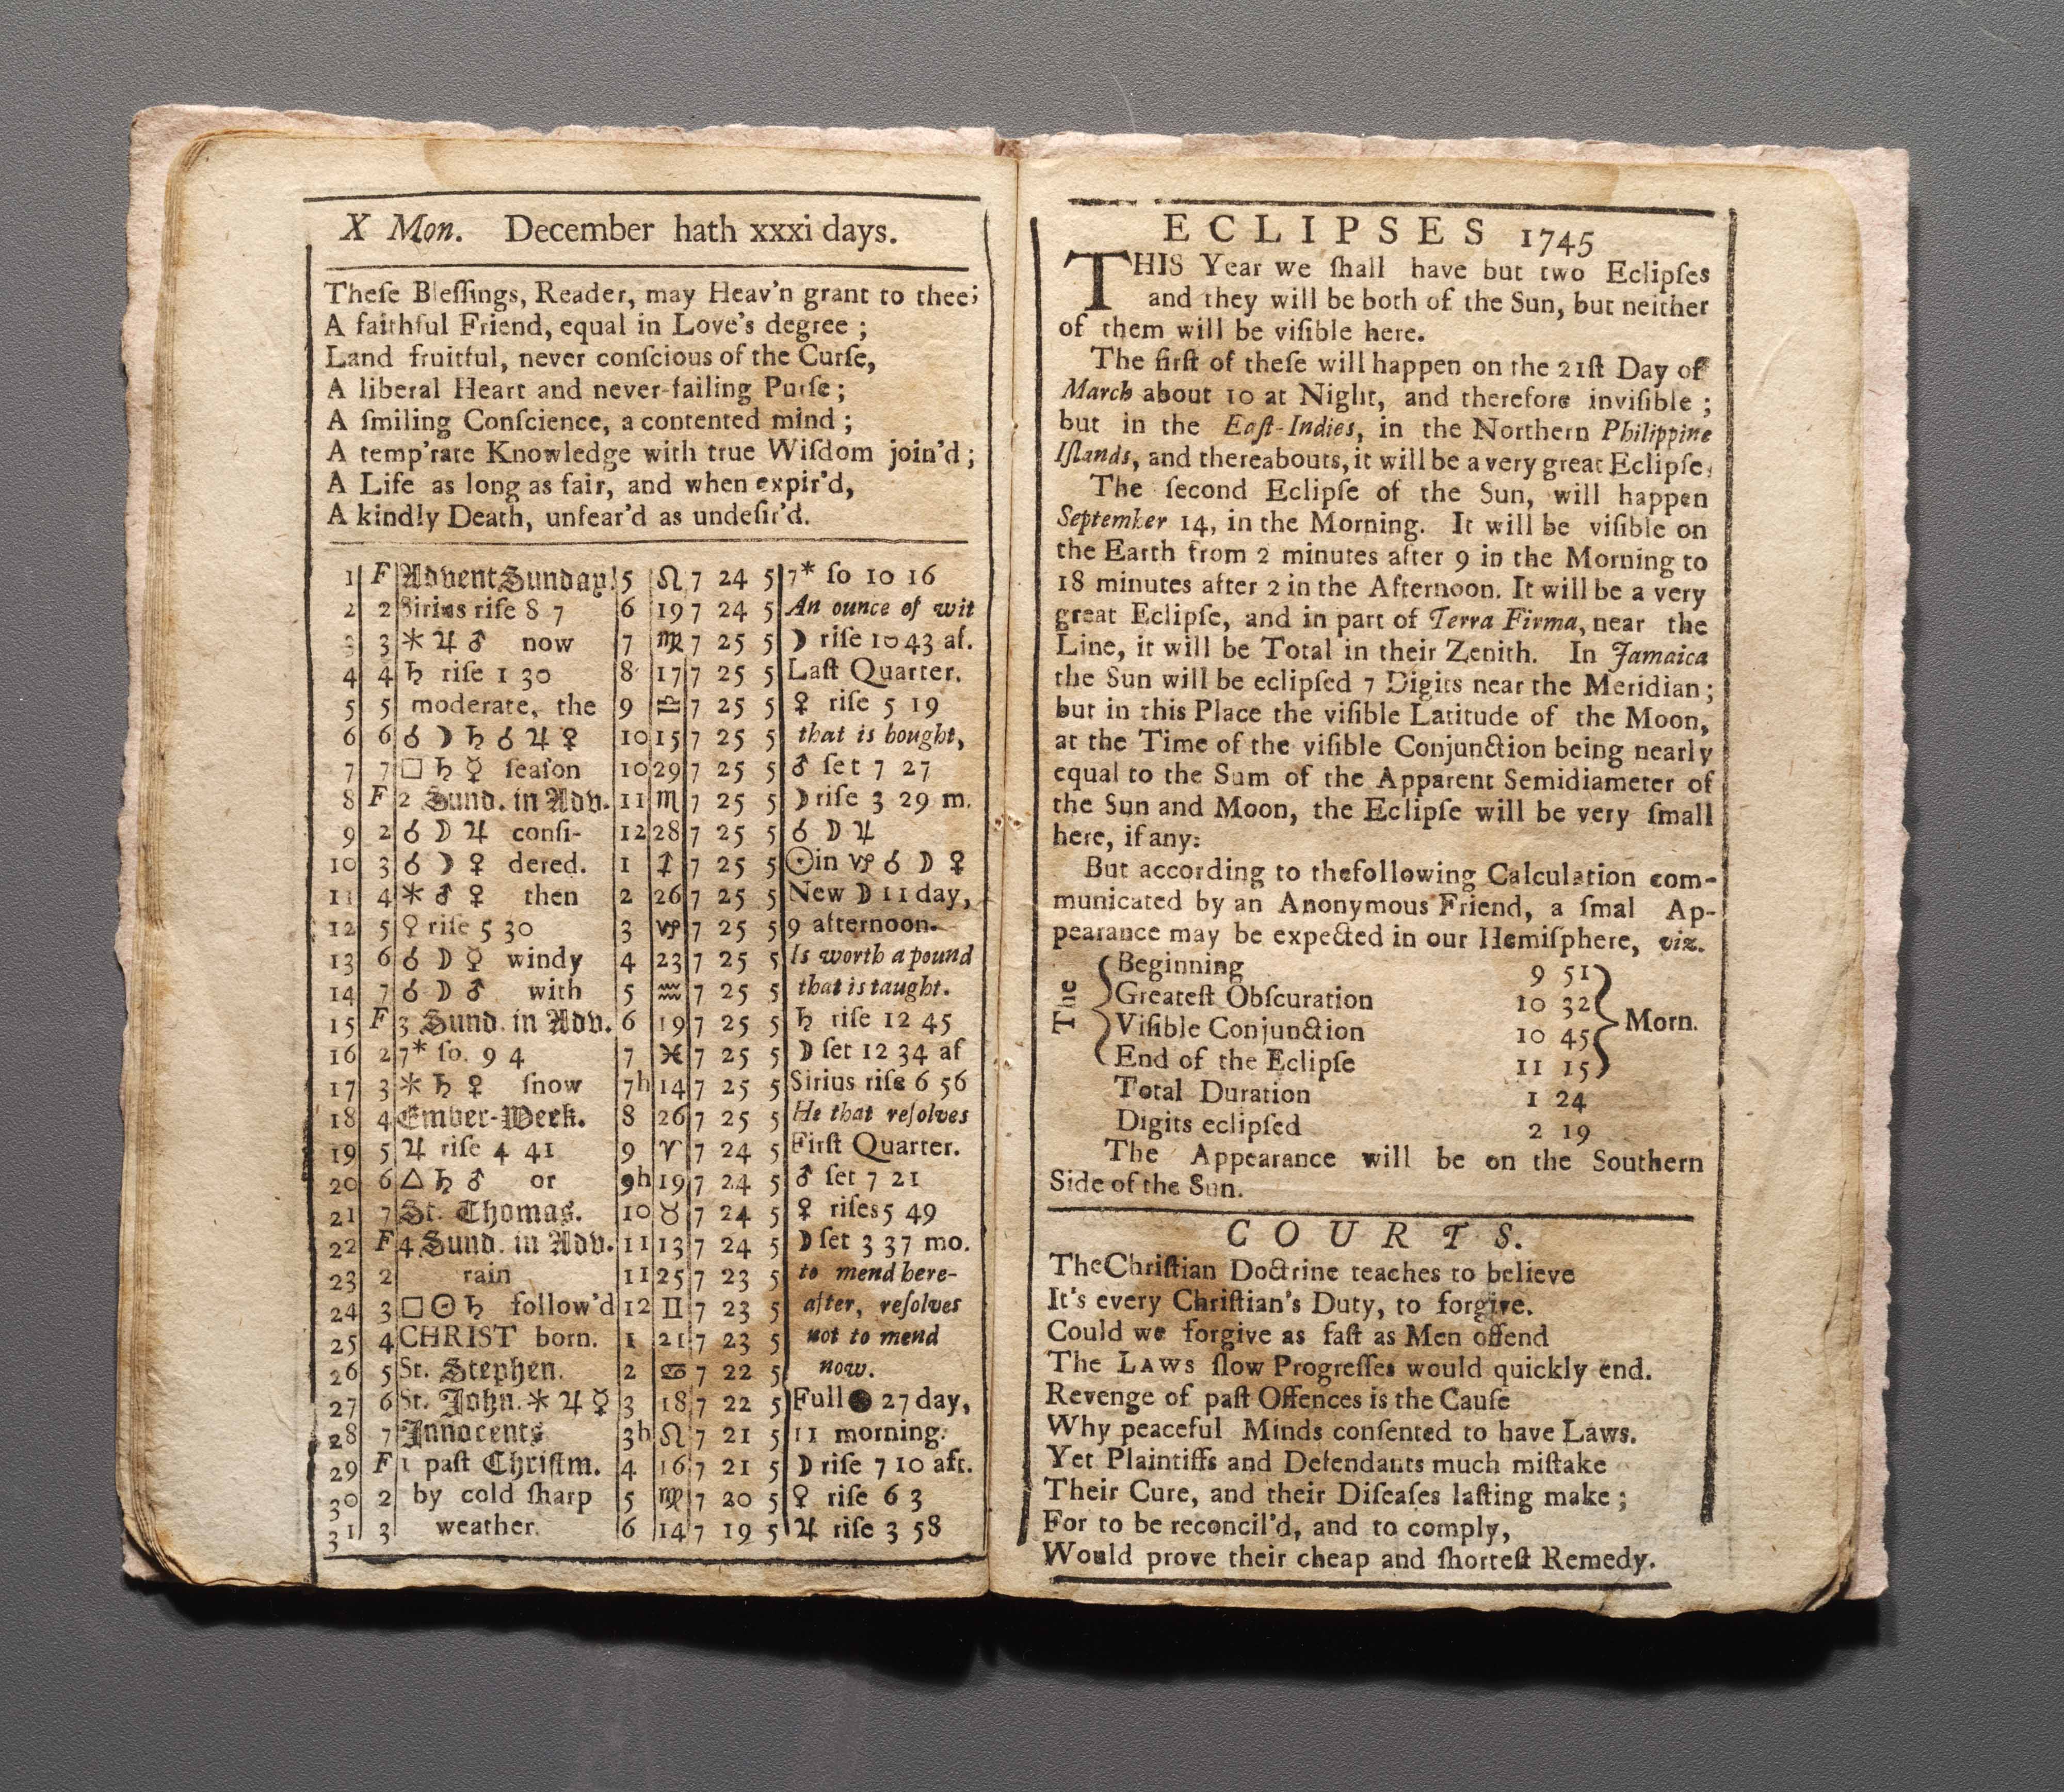 X Mon. December hath xxxi days.
Theſe Bleſſings, Reader, may Heav'n grant to thee;
A faithful Friend, equal in Love's degree ;
Land fruitful, never conſcious of the Curſe,
A liberal Heart and never-failing Purſe ;
A ſmiling Conſcience, a contented mind ;
A temp'rate Knowledge with true Wiſdom join'd ;
A Life as long as fair, and when expir'd,
A kindly Death, unfear'd as undeſir'd.
1 F Advent Sunday. 5 ♌ 7 24 5 7* ſo 10 16
2 2 Sirius riſe 8 7 6 19 7 24 5 An ounce of wit
3 3 ⚹ ♃ ♂ now 7 ♍ 7 25 5 ☽ riſe 10 43 af.
4 4 ♄ riſe 1 30 8 17 7 25 5 Laſt Quarter.
5 5 moderate, the 9 ♎ 7 25 5 ♀ riſe 5 19
6 6 ☌ ☽ ♄ ☌ ♃ ♀ 10 15 7 25 5 that is bought,
7 7 □ ♄ ☿ ſeaſon 10 29 7 25 5 ♂ ſet 7 27
8 F 2 Sund. in Adv. 11 ♏ 7 25 5 ☽ riſe 3 29 m.
9 2 ☌ ☽ ♃ conſi- 12 28 7 25 5 ☌ ☽ ♃
10 3 ☌ ☽ ♀ dered. 1 ♐ 7 25 5 ☉ in ♑ ☌ ☽ ♀
11 4 ⚹ ♂ ♀ then 2 26 7 25 5 New ☽ 11 day,
12 5 ♀ riſe 5 30 3 ♑ 7 25 5 9 afternoon.
13 6 ☌ ☽ ☿ windy 4 23 7 25 5 Is worth a pound
14 7 ☌ ☽ ♂ with 5 ♒ 7 25 5 that is taught.
15 F 3 Sund. in Adv. 6 19 7 25 5 ♄ riſe 12 45
16 2 7* ſo. 9 4 7 ♓ 7 25 5 ☽ ſet 12 34 af
17 3 ⚹ ♄ ♀ ſnow 7h 14 7 25 5 Sirius riſe 6 56
18 4 Ember-Week. 8 26 7 25 5 He that reſolves
19 5 ♃ riſe 4 41 9 ♈ 7 24 5 Firſt Quarter.
20 6 △ ♄ ♂ or 9h 19 7 24 5 ♂ ſet 7 21
21 7 St. Thomas. 10 ♉ 7 24 5 ♀ riſes 5 49
22 F 4 Sund. in Adv. 11 13 7 24 5 ☽ ſet 3 37 mo.
23 2 rain 11 25 7 23 5 to mend here-
24 3 □ ☉ ♄ follow'd 12 ♊ 7 23 5 after, reſolves
25 4 CHRIST born. 1 21 7 23 5 not to mend
26 5 St. Stephen. 2 ♋ 7 22 5 now.
27 6 St. John. ⚹ ♃ ☿ 3 18 7 22 5 Full ● 27 day,
28 7 Innocents 3h ♌ 7 21 5 11 morning.
29 F 1 paſt Chriſtm. 4 16 7 21 5 ☽ riſe 7 10 aft.
30 2 by cold ſharp 5 ♍ 7 20 5 ♀ riſe 6 3
31 3 weather. 6 14 7 19 5 ♃ riſe 3 58
ECLIPSES 1745
THIS Year we ſhall have but two Eclipſes
and they will be both of the Sun, but neither
of them will be viſible here.
The firſt of theſe will happen on the 21ſt Day of
March about 10 at Night, and therefore inviſible ;
but in the Eaſt-Indies, in the Northern Philippine
Iſlands, and thereabouts, it will be a very great Eclipſe.
The ſecond Eclipſe of the Sun, will happen
September 14, in the Morning. It will be viſible on
the Earth from 2 minutes after 9 in the Morning to
18 minutes after 2 in the Afternoon. It will be a very
great Eclipſe, and in part of Terra Firma, near the
Line, it will be Total in their Zenith. In Jamaica
the Sun will be eclipſed 7 Digits near the Meridian ;
but in this Place the viſible Latitude of the Moon,
at the Time of the viſible Conjunction being nearly
equal to the Sum of the Apparent Semidiameter of
the Sun and Moon, the Eclipſe will be very ſmall
here, if any:
But according to thefollowing Calculation com-
municated by an Anonymous Friend, a ſmal Ap-
pearance may be expected in our Hemiſphere, viz.
The
Beginning 9 51
Greateſt Obſcuration 10 32
Viſible Conjunction 10 45
End of the Eclipſe 11 15
Morn.
Total Duration 1 24
Digits eclipſed 2 19
The Appearance will be on the Southern
Side of the Sun.
COURTS.
The Chriſtian Doctrine teaches to believe
It's every Chriſtian's Duty, to forgive.
Could we forgive as faſt as Men offend
The LAWS ſlow Progreſſes would quickly end.
Revenge of paſt Offences is the Cauſe
Why peaceful Minds conſented to have Laws.
Yet Plaintiffs and Defendants much miſtake
Their Cure, and their Diſeaſes laſting make ;
For to be reconcil'd, and to comply,
Would prove their cheap and ſhorteſt Remedy.